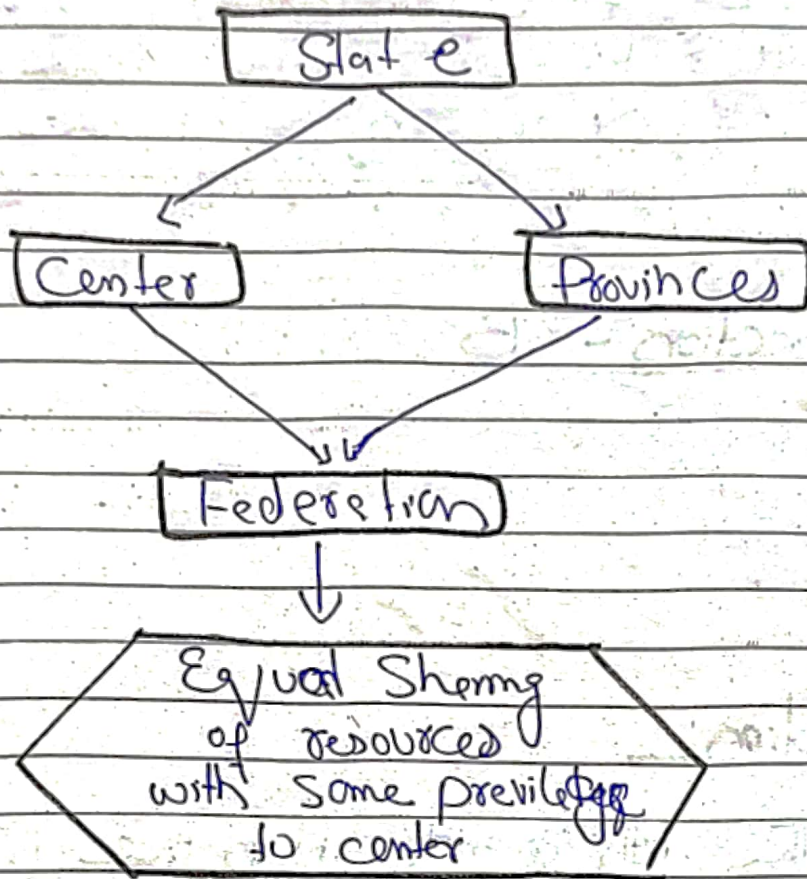 State
Center
Provinces
Federation
Equal Sharing
of resources
with some previleges
to center